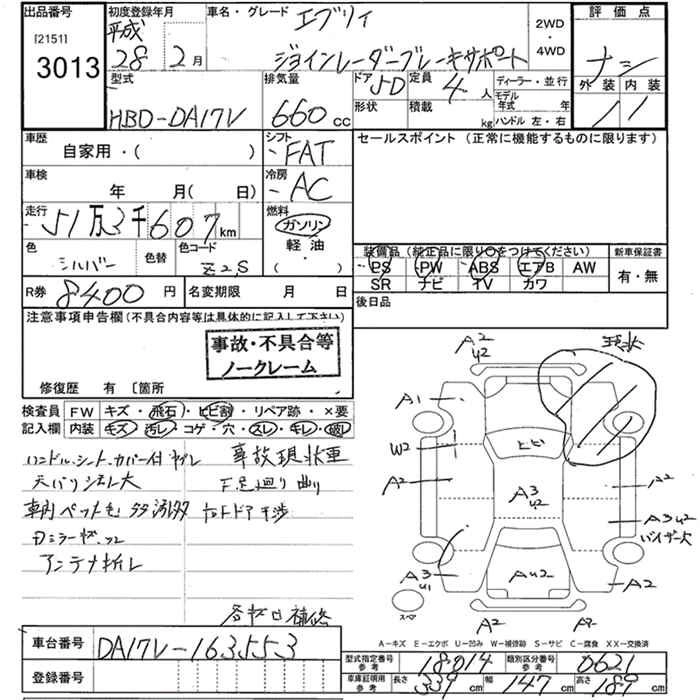 出品番号
[2151]
3013
初度登録年月
平成
28 2月
車名・グレード
エブリィ
ジョインレーダーブレーキサポート
2WD
・
4WD
評価点
ナシ
外装 内装
型式
HBD-DA17V
排気量
660cc
ドア 5D
形状
定員 4人
積載 kg
ディーラー・並行
モデル
年式 年
ハンドル 左・右
車歴
自家用・( )
シフト
FAT
セールスポイント(正常に機能するものに限ります)
車検
年 月( 日)
冷房
AC
走行
51万3千607km
燃料
ガソリン
軽油・
( )
色
シルバー
色替
色コード
Z2S
装備品(純正品に限り○をつけてください)
PS PW ABS エアB AW
SR ナビ TV カワ
新車保証書
有・無
R券 8400円
名変期限 月 日
後日品
注意事項申告欄(不具合内容等は具体的に記入して下さい)
事故・不具合等
ノークレーム
修復歴 有 〔箇所
検査員
記入欄
FW キズ・飛石・ヒビ割・リペア跡・×要
内装 キズ・汚レ・コゲ・穴・スレ・キレ・
ハンドル、シート、カバー付 事故現状車
天バリ 大 下廻り曲り
ドア干渉
アンテナ折レ
補修
A2
A1
W2
A2
ヒビ
A3
A2
A3
バイザー大
A3
U1
AU2
A2
A2
A2
スペア
A-キズ E-エクボ U-凹み W-補修跡 S-サビ C-腐食 XX-交換済
車台番号 DA17V-163553
登録番号
型式指定番号
参考
18014
類別区分番号
参考
0621
車庫証明用
参考
長さ 339cm 幅 147cm 高さ 189cm